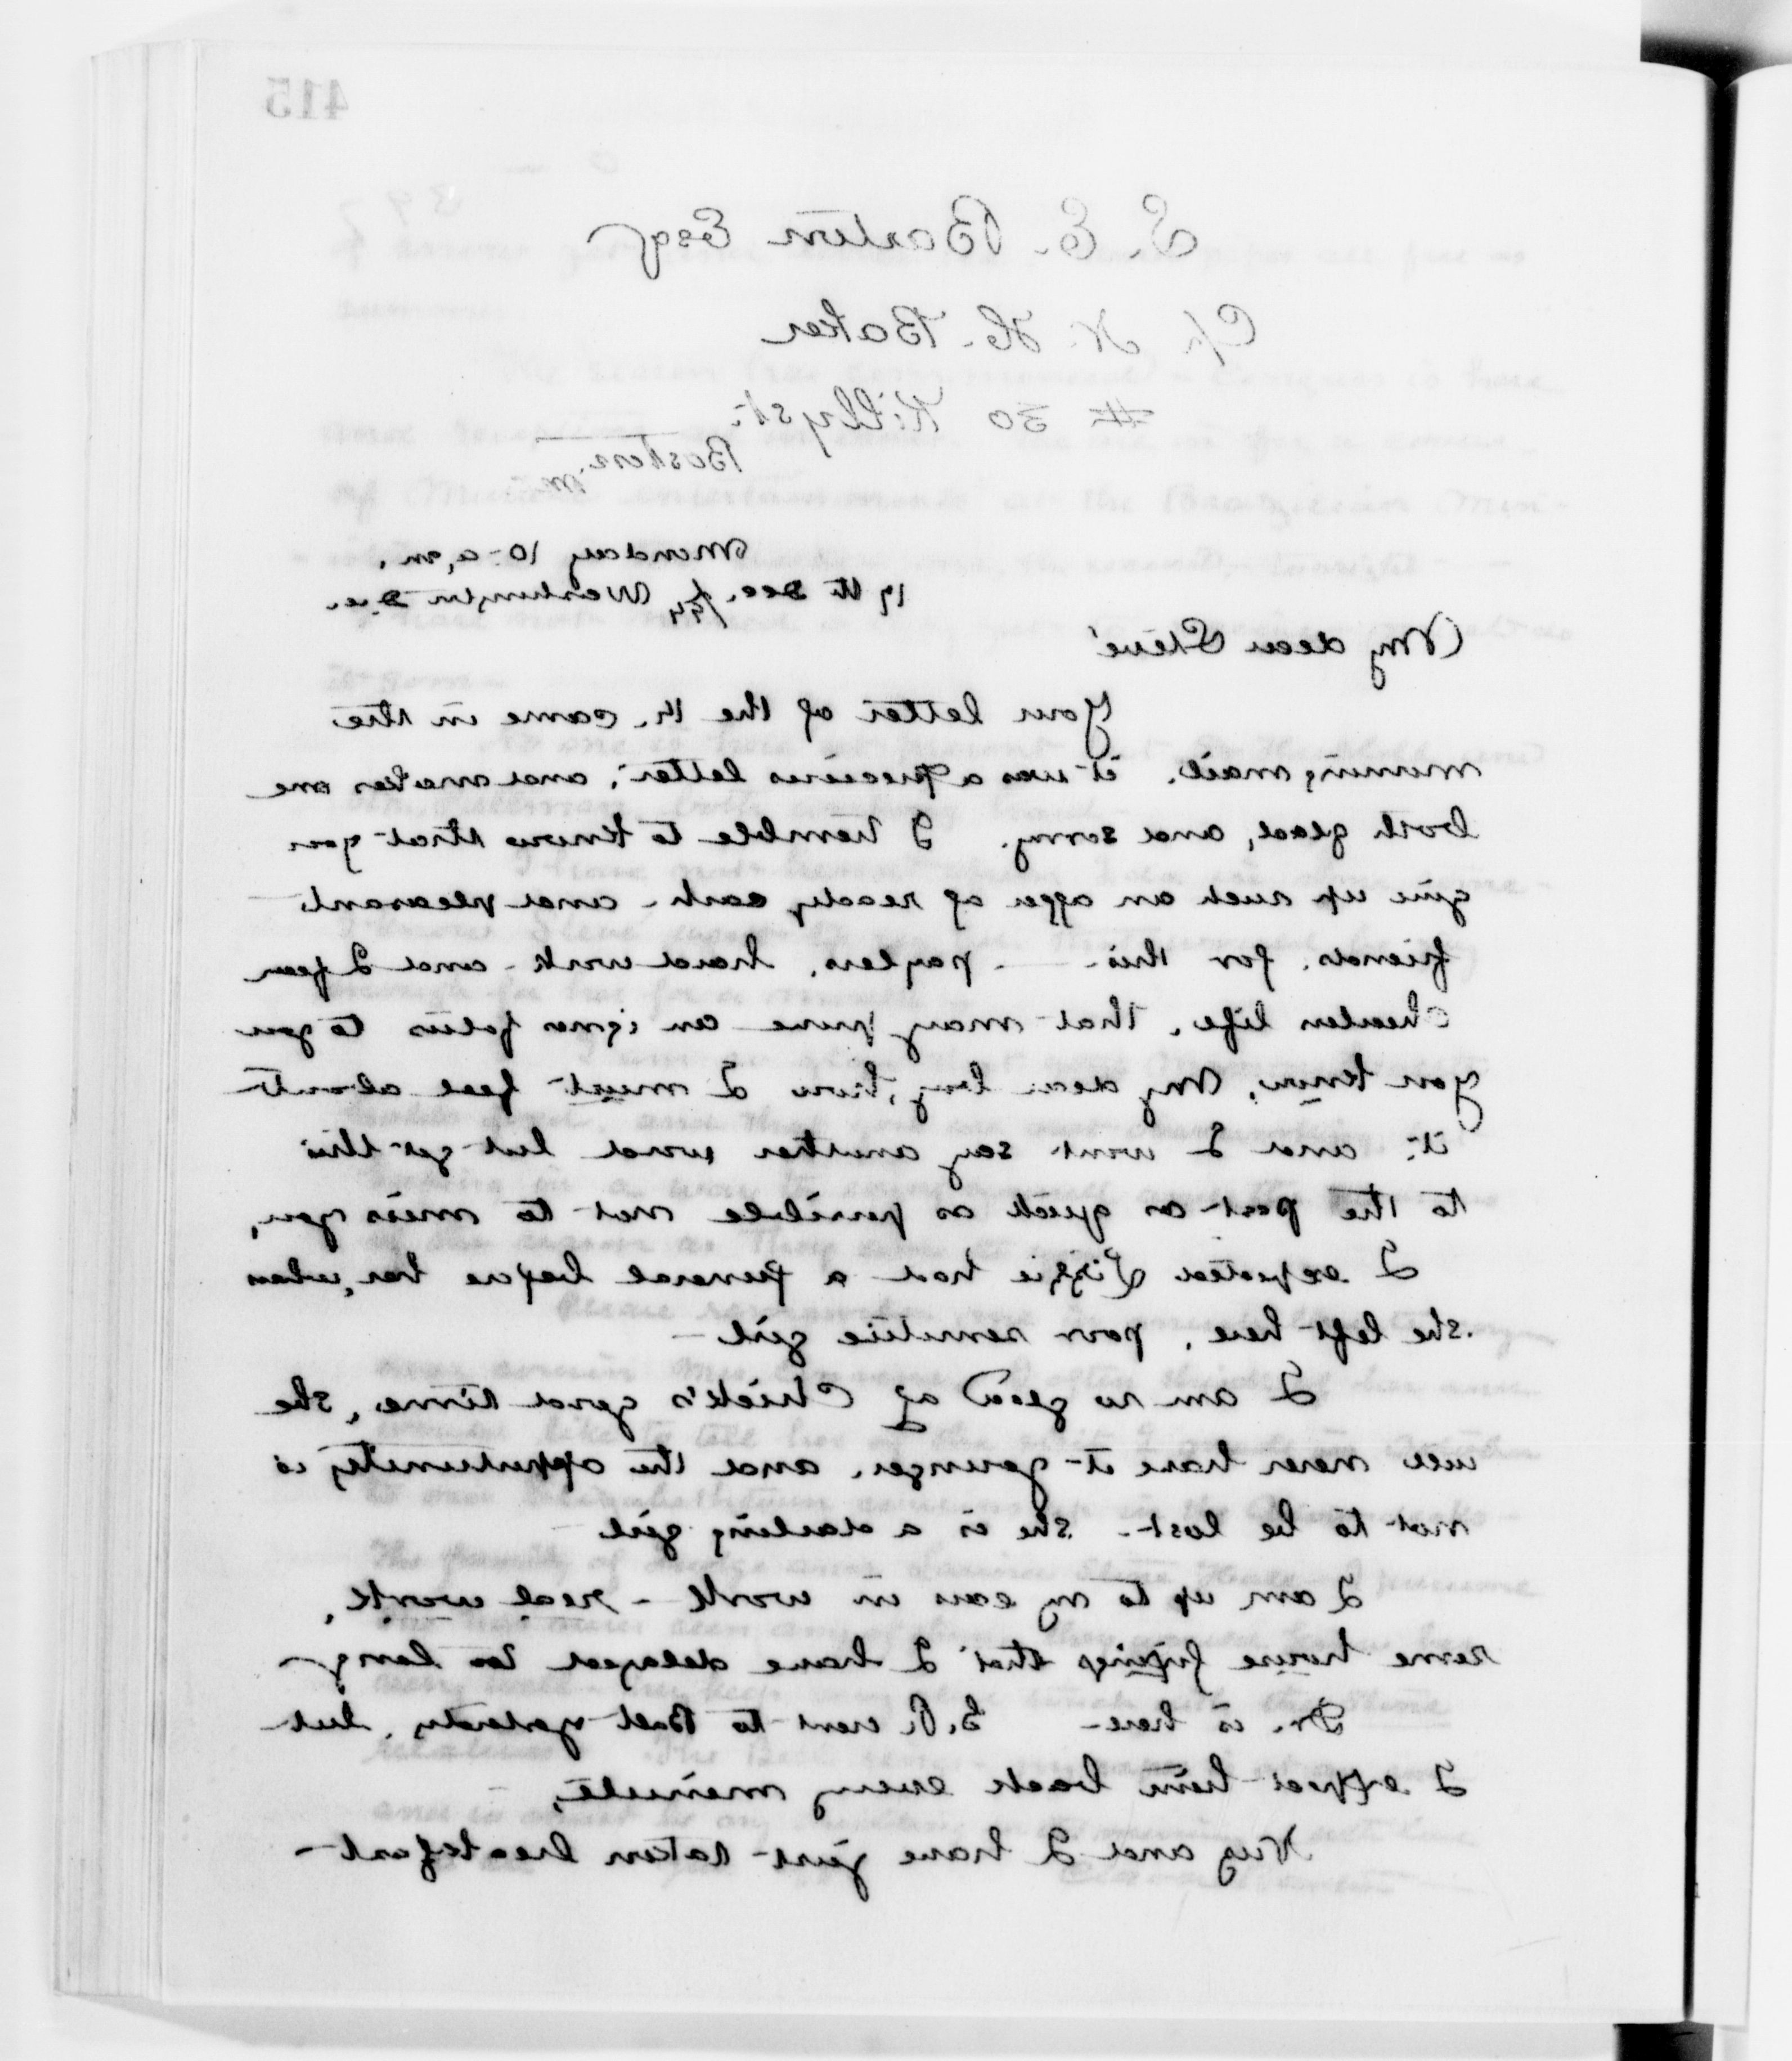 415
S. E. Barton Esq
C/o N. H. Baker
# 30 Kilby st.
Boston
Monday 10 a.m.
17th Dec. /94 Washington D.C.
My dear Steve'
Your letter of the 14. came in the
morning mail. it was a precious letter, and makes me
both glad, and sorry. I tremble to know that you
give up such an offer of ready cash - and pleasant
friends. for this - payless, hard work - and I fear
cheerless life. that may prove an ignes fatuis to you
you know, my dear boy, how I must feel about
it. and I wont say another word but get this
to the post as quick as possible not to miss you,
I expected Lizzie had a funeral before her, when
she left here. poor sensitive girl -
I am so glad of Chick's good time, she
will never have it younger. and the opportunity is
not to be lost - she is a darling girl
I am up to my ears in work - real work.
some house fixings that I have delayed too long -
Dr. is here - G.P. went to Balt yesterday, but
I expect him back every minute,
and I have just taken breakfast -